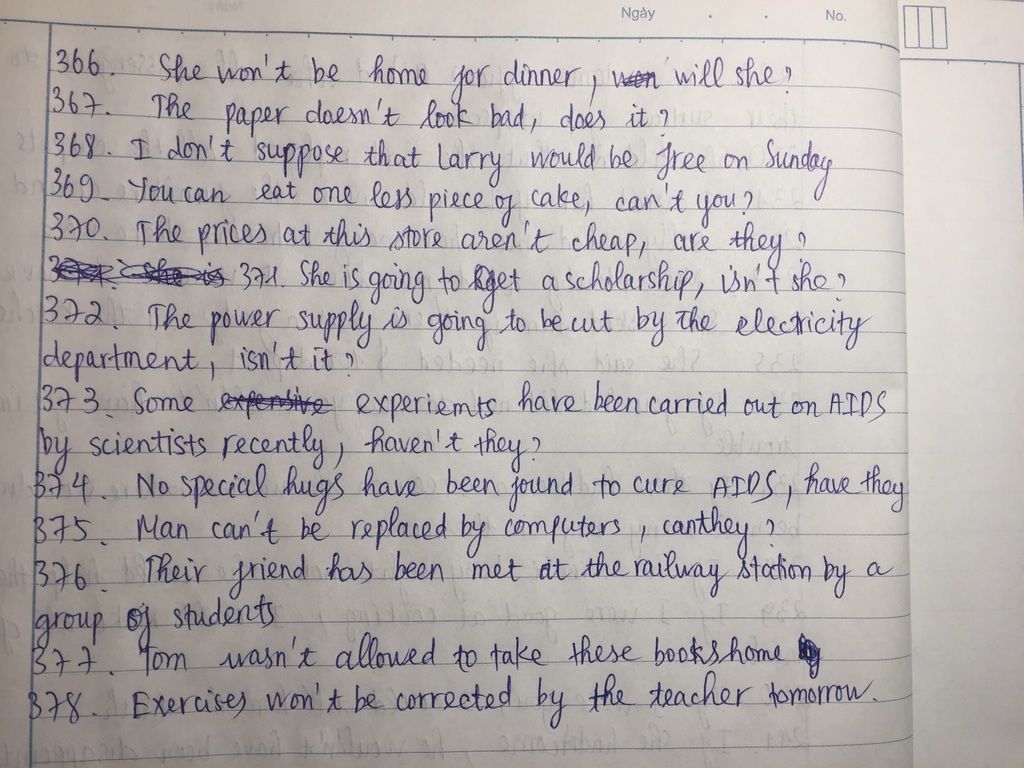 Ngày . . No.
366. She won't be home for dinner, will she?
367. The paper doesn't look bad, does it?
368. I don't suppose that Larry would be free on Sunday
369. You can eat one less piece of cake, can't you?
370. The prices at this store aren't cheap, are they?
371. She is going to get a scholarship, isn't she?
372. The power supply is going to be cut by the electricity
department, isn't it?
373. Some experiemts have been carried out on AIDS
by scientists recently, haven't they?
374. No special hugs have been found to cure AIDS, have they
375. Man can't be replaced by computers, can they?
376. Their friend has been met at the railway station by a
group of students
377. Tom wasn't allowed to take these books home
378. Exercises won't be corrected by the teacher tomorrow.